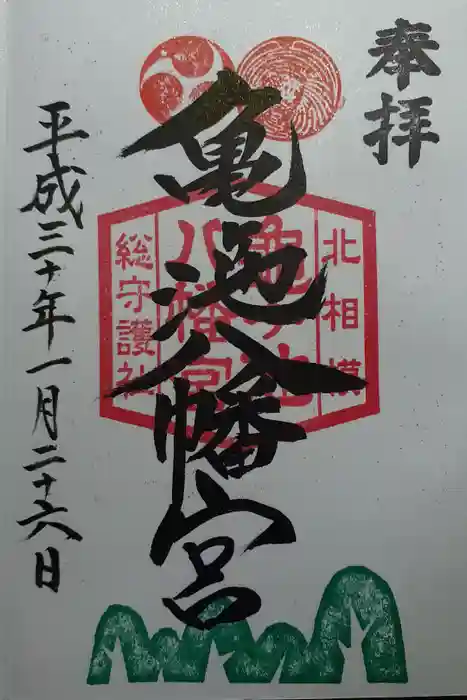 奉拝
亀池八幡宮
北相模
亀ヶ池
八幡宮
総守護社
平成三十年一月二十六日